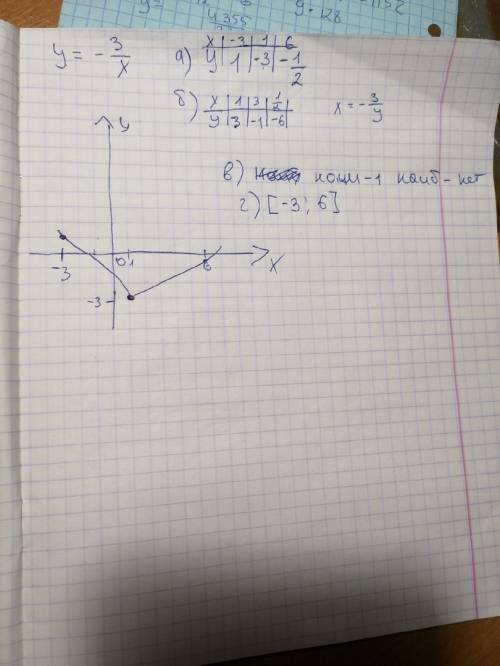 4355
y·128
1152
y = - 3/x
а) x | -3 | 1 | 6
y | 1 | -3 | -1/2
б) x | 1 | 3 | 1/2
y | 3 | -1 | -6
x = - 3/y
в) наим-1 наиб-нет
г) [-3; 6]
y
-3 0 1 6 x
-3